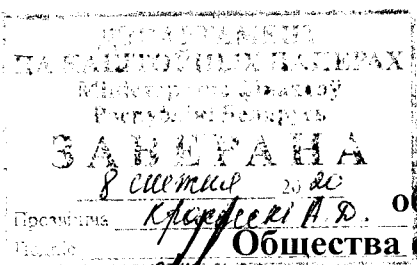 ДЭПАРТАМЕНТ
ПА КАШТОЎНЫХ ПАПЕРАХ
Міністэрства фінансаў
Рэспублікі Беларусь
ЗАВЕРАНА
8 снежня 2020
Прозвішча А. Д.
Подпіс
Общества